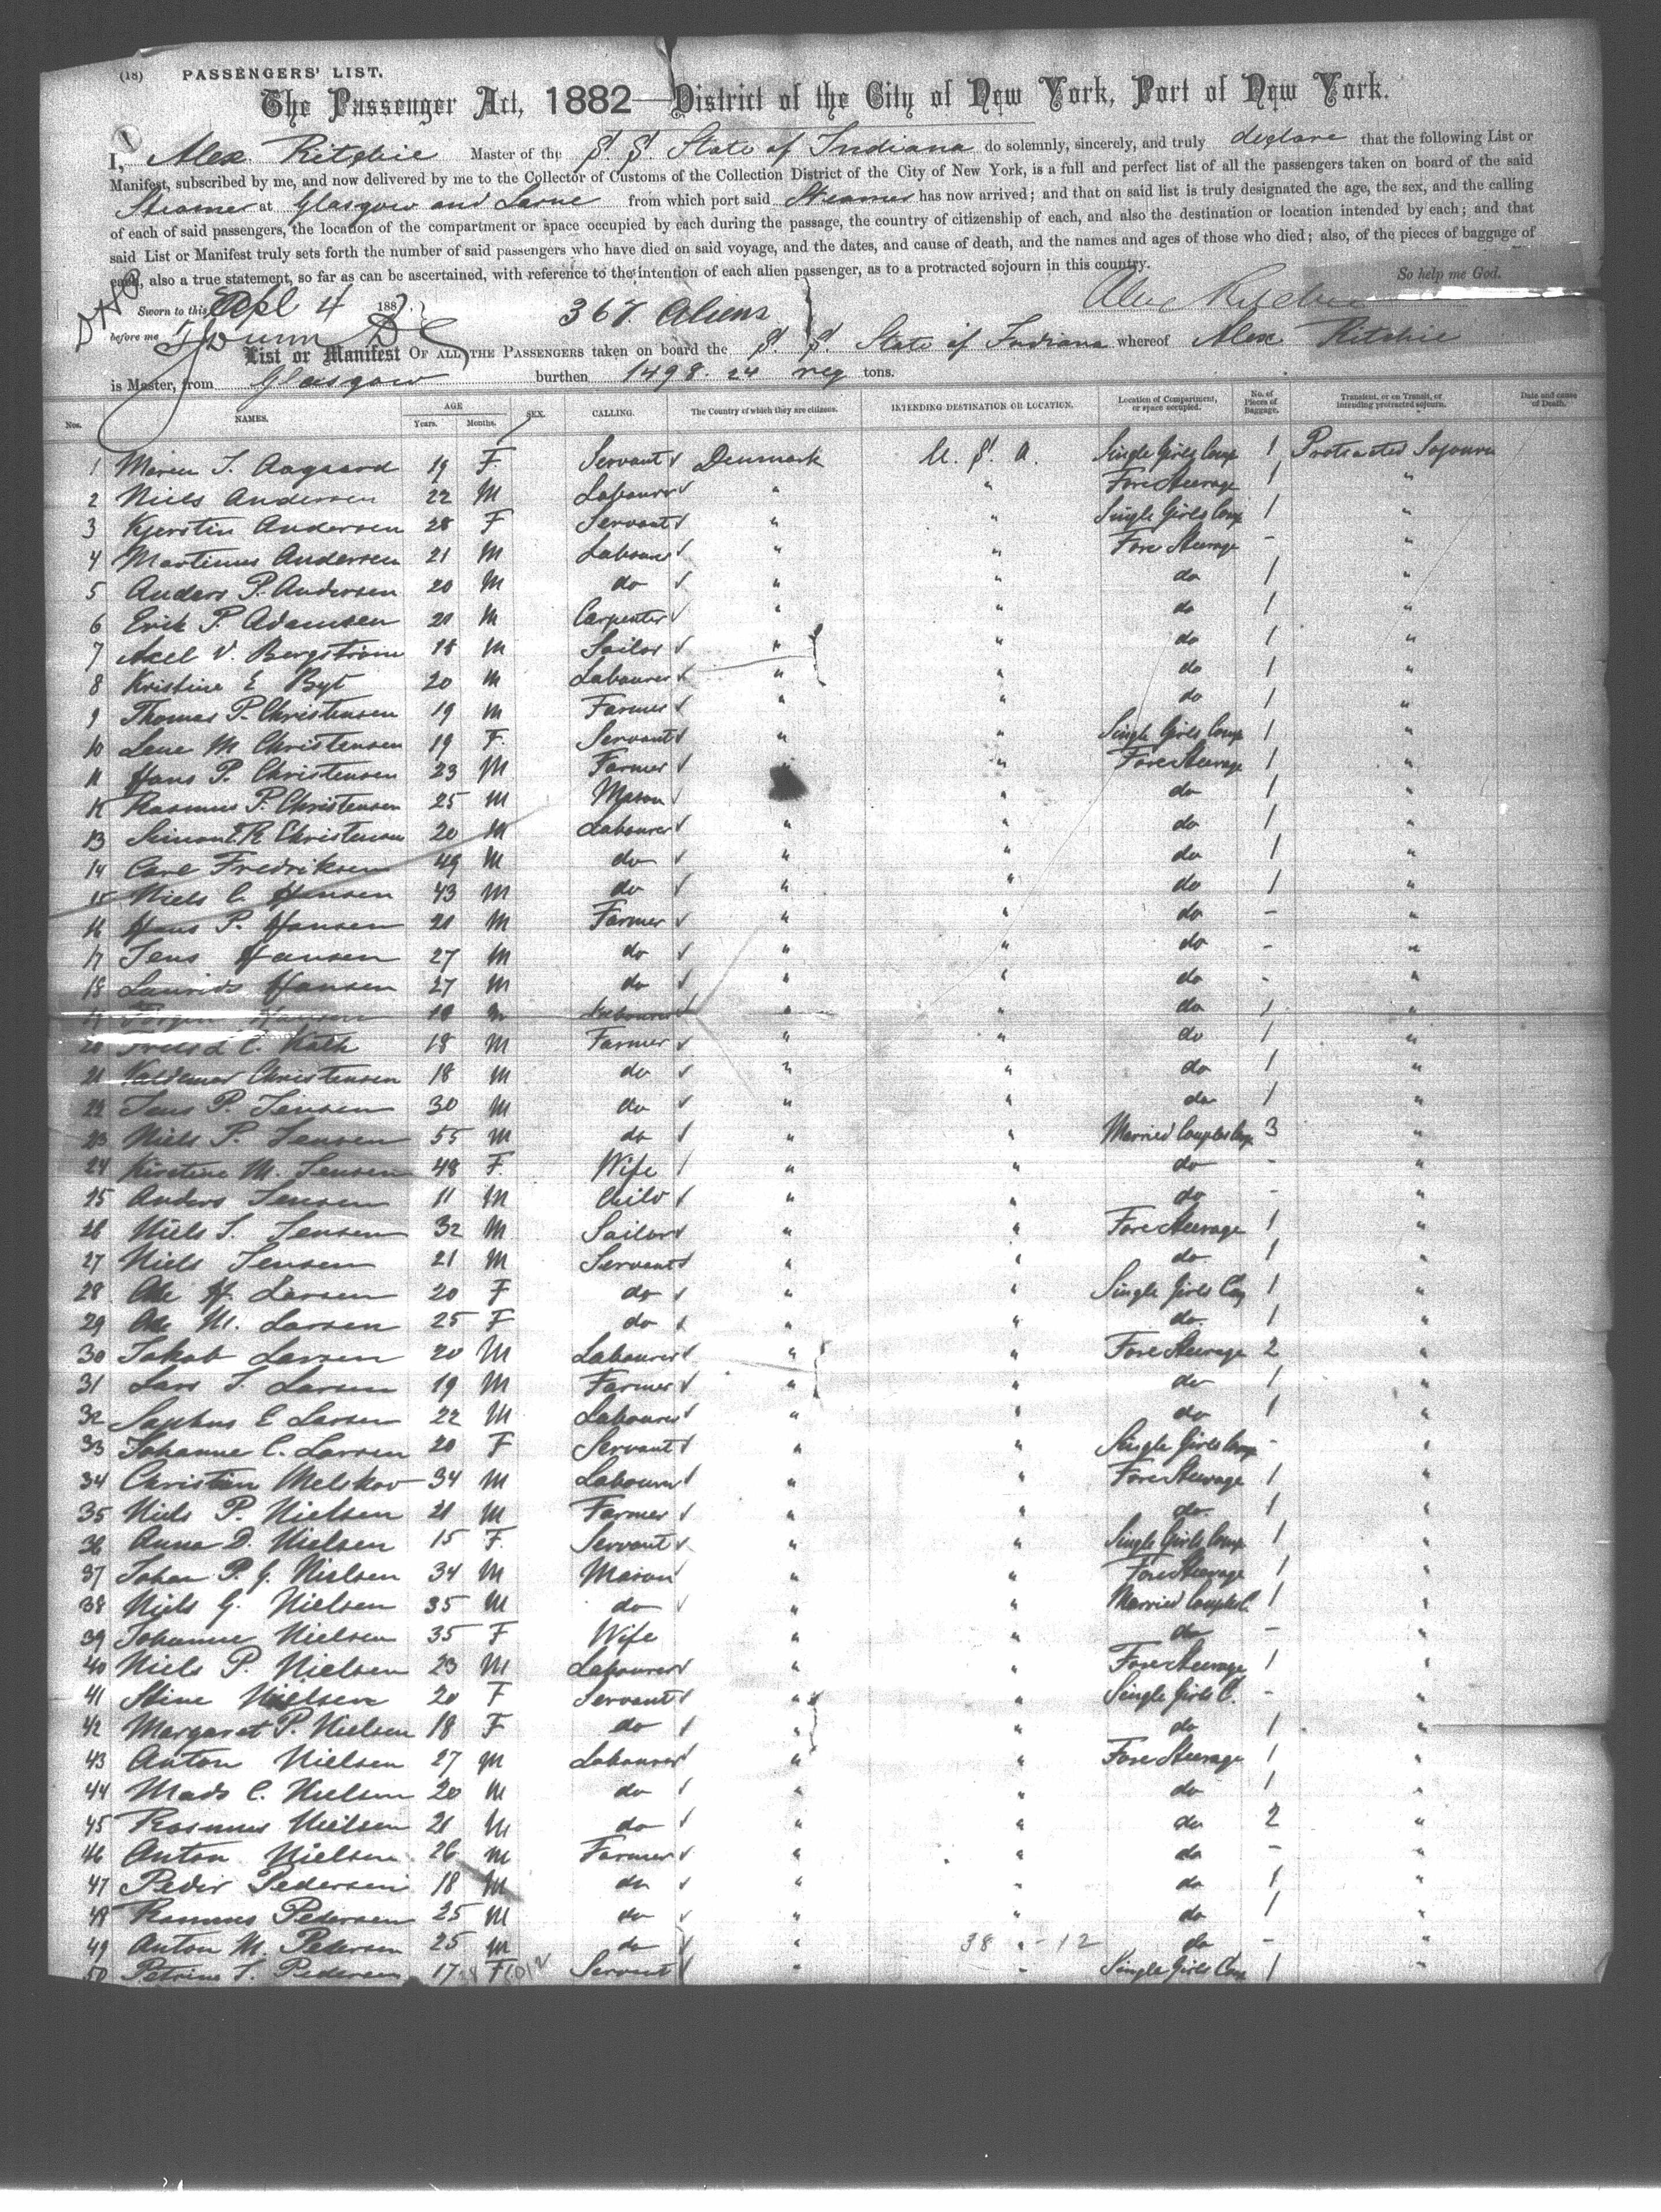 (18) PASSENGERS' LIST.
The Passenger Act, 1882—District of the City of New York, Port of New York.
I, Alex Ritchie Master of the S. S. State of Indiana do solemnly, sincerely, and truly declare that the following List or
Manifest, subscribed by me, and now delivered by me to the Collector of Customs of the Collection District of the City of New York, is a full and perfect list of all the passengers taken on board of the said
Steamer at Glasgow and Larne from which port said Steamer has now arrived; and that on said list is truly designated the age, the sex, and the calling
of each of said passengers, the location of the compartment or space occupied by each during the passage, the country of citizenship of each, and also the destination or location intended by each; and that
said List or Manifest truly sets forth the number of said passengers who have died on said voyage, and the dates, and cause of death, and the names and ages of those who died; also, of the pieces of baggage of
each, also a true statement, so far as can be ascertained, with reference to the intention of each alien passenger, as to a protracted sojourn in this country. So help me God.
Sworn to this 4 188 367. Aliens Alex Ritchie
before me
List or Manifest OF ALL THE PASSENGERS taken on board the S. S. State of Indiana whereof Alex Ritchie
is Master, from Glasgow burthen 1498. 24 reg tons.
Nos. NAMES. AGE Years. Months. SEX. CALLING. The Country of which they are citizens. INTENDING DESTINATION OR LOCATION. Location of Compartment, or space occupied. No. of Pieces of Baggage. Transient, or on Transit, or intending protracted sojourn. Date and cause of Death.
1 Maren J. Aagaard 19 F. Servant Denmark U. S. A. Single Girls Comp 1 Protracted Sojourn
2 Niels Andersen 22 M Labourer " " Fore Steerage 1 "
3 Kjerstin Andersen 28 F Servant " " Single Girls Comp 1 "
4 Martinus Andersen 21 M Labourer " " Fore Steerage - "
5 Anders P. Andersen 20 M do " " do 1 "
6 Erik P. Adamsen 21 M Carpenter " " do 1 "
7 Axel V. Bergstrom 18 M Sailor " " do 1 "
8 Kristine E 20 M Labourer " " do 1 "
9 Thomas P. Christensen 19 M Farmer " " do 1 "
10 Lene M Christensen 19 F. Servant " " Single Girls Comp 1 "
11 Hans P. Christensen 23 M Farmer " " Fore Steerage 1 "
12 Rasmus P. Christensen 25 M Mason " do 1 "
13 Christensen 20 M Labourer " " do 1 "
14 Carl Fredriksen 49 M do " " do 1 "
15 Niels C. Hansen 43 M do " " do 1 "
16 Hans P. Hansen 21 M Farmer " " do - "
17 Jens Hansen 27 M do " " do - "
18 Laurids Hansen 27 M do " " do - "
19 Hansen 18 M Labourer " " do 1 "
20 C. 18 M Farmer " " do 1 "
21 Valdemar Christensen 18 M do " " do 1 "
22 Jens P. Jensen 30 M do " " do 1 "
23 Niels P. Jensen 55 M do " " Married Couples Comp 3 "
24 Kirstine M. Jensen 48 F. Wife " " do - "
25 Anders Jensen 11 M Child " " do - "
26 Niels J. Jensen 32 M Sailor " " Fore Steerage 1 "
27 Niels Jensen 21 M Servant " " do 1 "
28 H. Larsen 20 F do " " Single Girls 1 "
29 M. Larsen 25 F do " " do. 1 "
30 Jakob Larsen 20 M Labourer " " Fore Steerage 2 "
31 Lars J. Larsen 19 M Farmer " " do 1 "
32 Sophus E Larsen 22 M Labourer " " do 1 "
33 Johanne C. Larsen 20 F Servant " " Single Girls Comp - "
34 Christian Melskov 34 M Labourer " " Fore Steerage 1 "
35 Niels P. Nielsen 21 M Farmer " " do. 1 "
36 Anna D. Nielsen 15 F. Servant " " Single Girls Comp 1 "
37 Johan P. G. Nielsen 34 M Mason " " Fore Steerage 1 "
38 Niels G. Nielsen 35 M do " " Married Couples C. 1 "
39 Johanne Nielsen 35 F Wife " " do - "
40 Niels P. Nielsen 23 M Labourer " " Fore Steerage 1 "
41 Stine Nielsen 20 F Servant " " Single Girls C. - "
42 Margaret P. Nielsen 18 F do " " do 1 "
43 Anton Nielsen 27 M Labourer " " Fore Steerage 1 "
44 Mads C. Nielsen 20 M do " " do 1 "
45 Rasmus Nielsen 21 M do " " do 2 "
46 Anton Nielsen 26 M Farmer " " do - "
47 Peder Pedersen 18 M do " " do 1 "
48 Rasmus Pedersen 25 M do " " do 1 "
49 Anton M. Pedersen 25 M do " 38 " - 12 do - "
50 Petrine J. Pedersen 17 F Servant " " Single Girls Comp 1 "